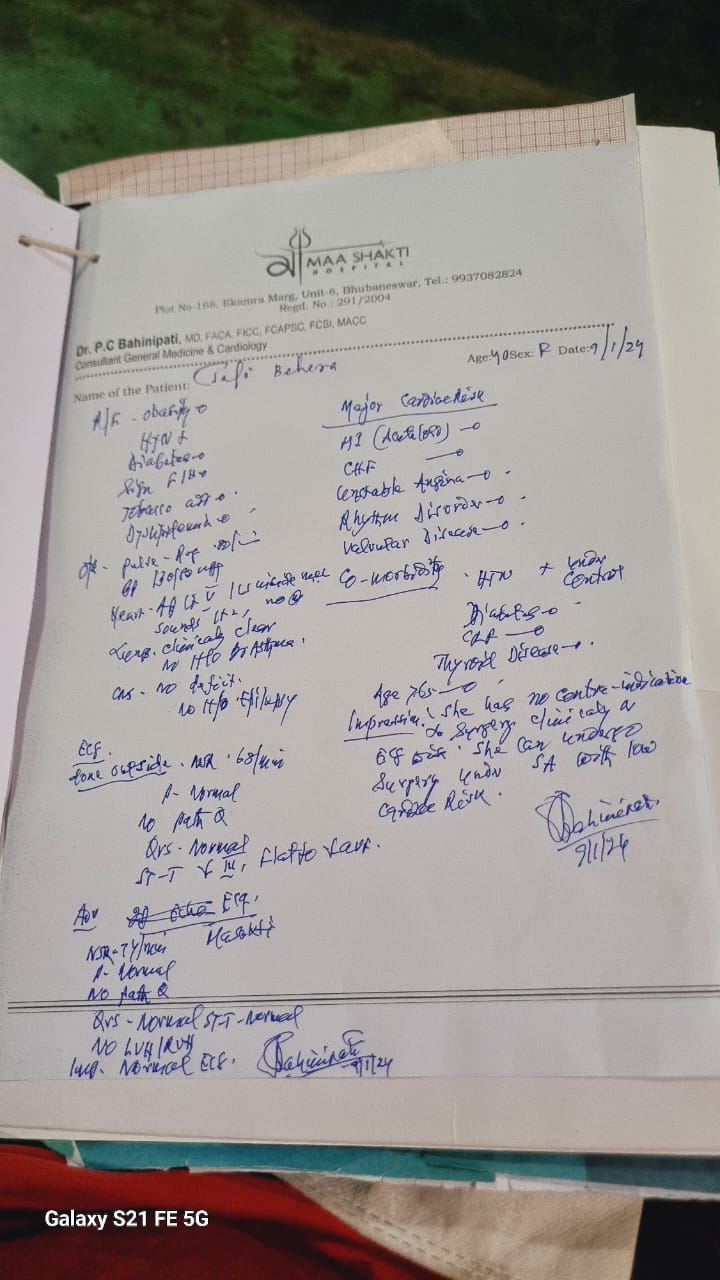 MAA SHAKTI
HOSPITAL
Plot No-168, Ekamra Marg, Unit-6, Bhubaneswar, Tel.: 9937082824
Regd. No.: 291/2004
Dr. P.C Bahinipati, MD, FACA, FICC, FCAPSC, FCSI, MACC
Consultant General Medicine & Cardiology
Name of the Patient: Behera Age: 40 Sex: F Date: 9/1/24
R/F - obesity o
HTN +
Diabetes - o
Sign F/H o
Tobacco o
Dyslipidemia o
O/E - Pulse - Reg
BP 130/80
Heart -
Sounds
Lungs. clinically clear
No H/o Br Asthma.
CNS - No deficit.
No H/o Epilepsy
Major Cardiac Risk
MI (Acute/Old) - o
CHF - o
Unstable Angina - o
Rhythm Disorder - o
Valvular Disease - o
Co-morbidity . HTN + under Control
Diabetes - o
CRF - o
Thyroid Disease - o
Age >65 - o
Impression: She has no contra-indication
to Surgery clinically &
ECG She can undergo
Surgery under SA with low
Cardiac Risk.
9/1/24
ECG
done outside. NSR. 68/min
P- Normal
No path Q
Qrs - Normal
ST-T III, Flat to
Adv ECG.
NSR - 74/min
P- Normal
No path Q
Qrs - Normal ST-T - Normal
NO LVH/RVH
Imp. Normal ECG.
9/1/24
Galaxy S21 FE 5G